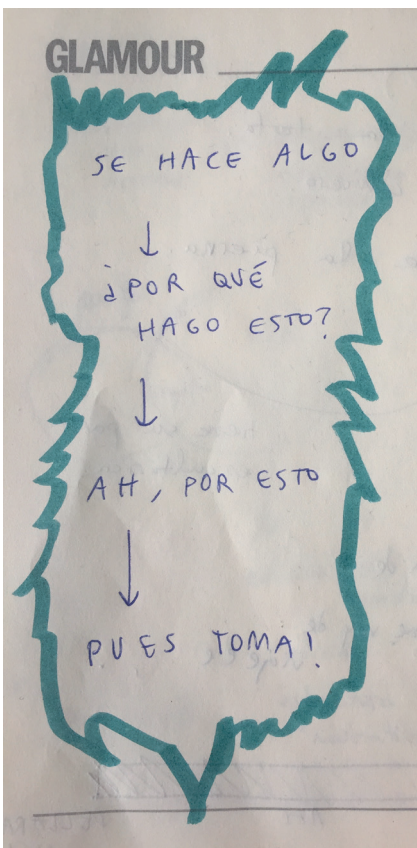 GLAMOUR
SE HACE ALGO
¿POR QUÉ
HAGO ESTO?
AH, POR ESTO
PUES TOMA!